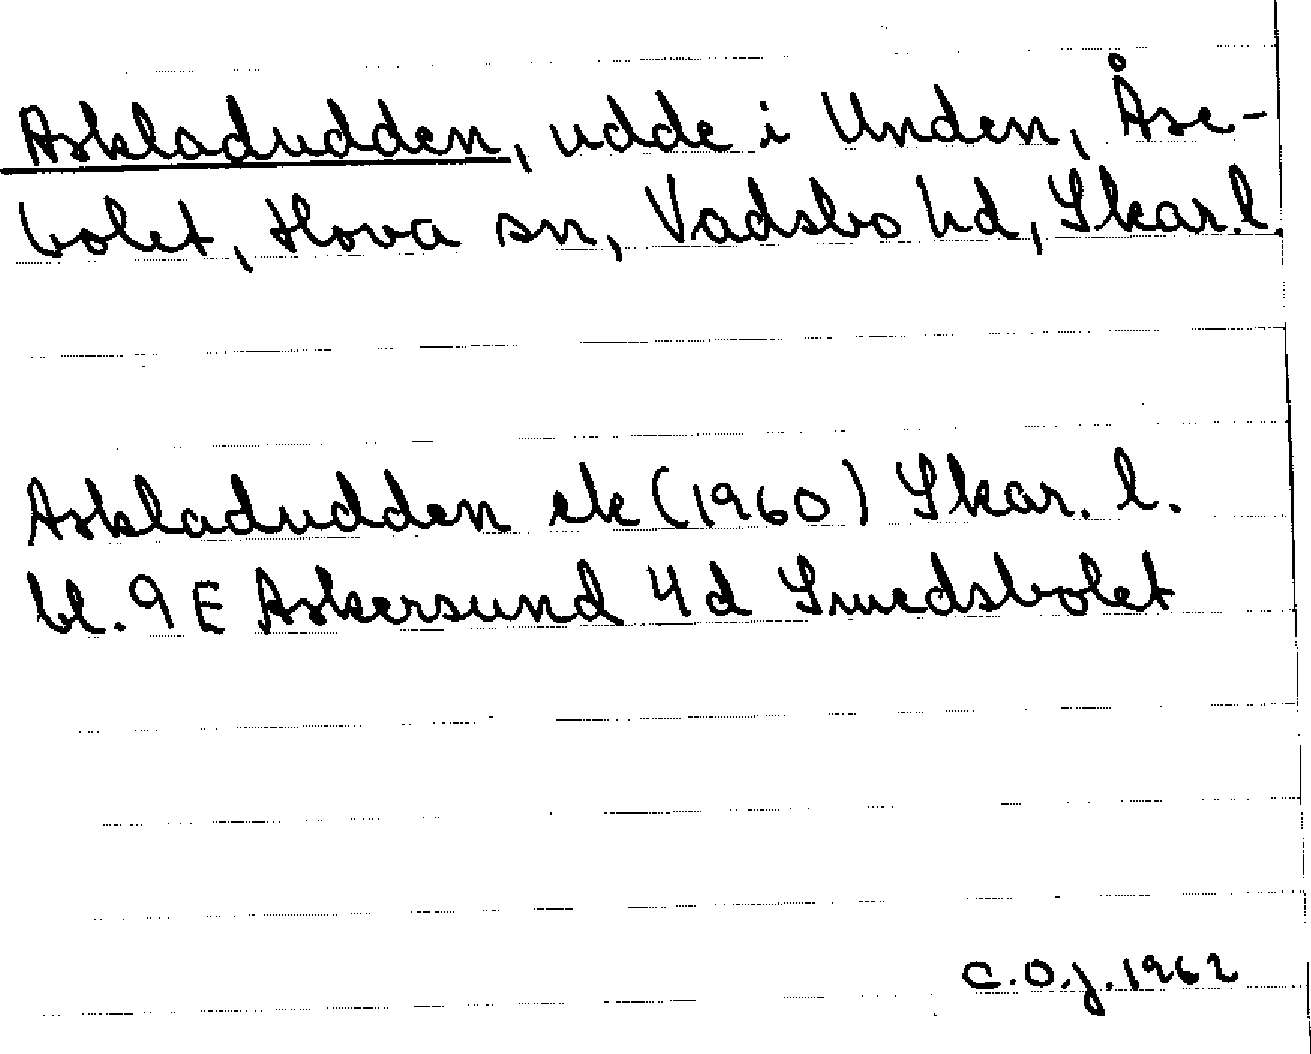 Askladudden, udde i Unden, Åse-
bolet, Hova sn, Vadsbo hd, Skar. l.
Askladudden ek (1960) Skar. l.
bl. 9 E Askersund 4 d Smedsbolet
C.O.J. 1962